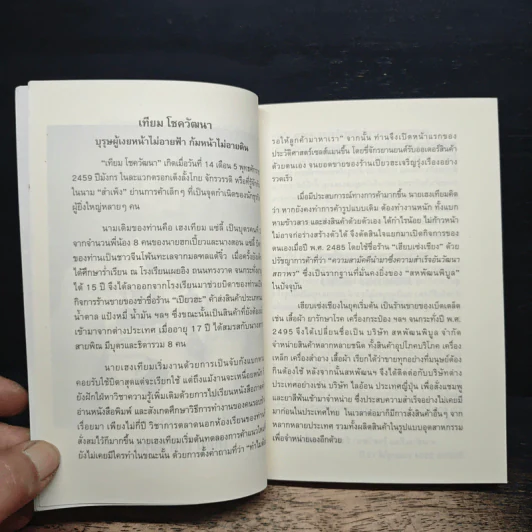 เทียม โชควัฒนา
บุรุษผู้เงยหน้าไม่อายฟ้า ก้มหน้าไม่อายดิน
"เทียม โชควัฒนา" เกิดเมื่อวันที่ 14 เดือน 5 พุทธศักราช
2459 ปีมังกร ในละแวกตรอกเต๊งลั้งโกย จักรวรรดิ หรือที่รู้จักกัน
ในนาม "สำเพ็ง" ย่านการค้าเล็กๆ ที่เป็นจุดกำเนิดของนักธุรกิจ
ผู้ยิ่งใหญ่หลายๆ คน
นามเดิมของท่านคือ เฮงเทียม แซ่ลี้ เป็นบุตรคน
จากจำนวนพี่น้อง 8 คนของนายฮกเปี้ยวและนางสอน แซ่ลี้
ของท่านเป็นชาวจีนโพ้นทะเลจากมณฑลแต้จิ๋ว เมื่อครั้งยังเด็ก
ได้ศึกษาร่ำเรียน ณ โรงเรียนเผยอิง ถนนทรงวาด จนกระทั่ง
ได้ 15 ปี จึงได้ลาออกจากโรงเรียนมาช่วยบิดาของท่าน
กิจการร้านขายของชำชื่อร้าน "เปียวฮะ" ค้าส่งสินค้าประเภท
น้ำตาล แป้งหมี่ น้ำมัน ฯลฯ ซึ่งขณะนั้นเป็นสินค้าที่ยังต้อง
เข้ามาจากต่างประเทศ เมื่ออายุ 17 ปี ได้สมรสกับนางสาว
สายพิณ มีบุตรและธิดารวม 8 คน
นายเฮงเทียมเริ่มงานด้วยการเป็นจับกังแบก
คอยรับใช้บิดาสุดแต่จะเรียกใช้ แต่ถึงแม้งานจะเหนื่อย
ยังฝักใฝ่หาวิชาความรู้เพิ่มเติมด้วยการไปเรียนหนังสือภาคค่ำ
อ่านหนังสือพิมพ์ และสังเกตศึกษาวิธีการทำงานของคน
เรื่อยมา เพียงไม่กี่ปี วิชาการตลาดนอกห้องเรียนของท่าน
สั่งสมไว้ก็มากขึ้น นายเฮงเทียมเริ่มต้นทดลองการค้าแนวใหม่
ยังไม่เคยมีใครทำในขณะนั้น ด้วยการตั้งคำถามที่ว่า "ทำไมต้อง
รอให้ลูกค้ามาหาเรา" จากนั้น ท่านจึงเปิดหน้าแรกของ
ประวัติศาสตร์เซลส์แมนขึ้น โดยขี่จักรยานยนต์รับออเดอร์สินค้า
ด้วยตนเอง จนยอดขายของร้านเปียวฮะเจริญรุ่งเรืองอย่าง
รวดเร็ว
เมื่อมีประสบการณ์ทางการค้ามากขึ้น นายเฮงเทียมคิด
ว่า หากยังคงทำการค้ารูปแบบเดิม ต้องทำงานหนัก ทั้งแบก
หามข้าวสาร และส่งสินค้าด้วยตัวเอง ได้กำไรน้อย ไม่ก้าวหน้า
ไม่อาจก่อร่างสร้างตัวได้ จึงตัดสินใจแยกมาเปิดกิจการของ
ตนเองเมื่อปี พ.ศ. 2485 โดยใช้ชื่อร้าน "เฮียบเซ่งเชียง" ด้วย
ปรัชญาการค้าที่ว่า "ความสามัคคีนำมาซึ่งความสำเร็จอันวัฒนา
สถาพร" ซึ่งเป็นรากฐานที่มั่นคงยิ่งของ "สหพัฒนพิบูล"
ในปัจจุบัน
เฮียบเซ่งเชียงในยุคเริ่มต้น เป็นร้านขายของเบ็ดเตล็ด
เช่น เสื้อผ้า ยารักษาโรค เครื่องกระป๋อง ฯลฯ จนกระทั่งปี พ.ศ.
2495 จึงได้เปลี่ยนชื่อเป็น บริษัท สหพัฒนพิบูล จำกัด
จำหน่ายสินค้าหลากหลายชนิด ทั้งสินค้าอุปโภคบริโภค เครื่อง
เหล็ก เครื่องสำอาง เสื้อผ้า เรียกได้ว่าขายทุกอย่างที่มนุษย์ต้อง
กินต้องใช้ หลังจากนั้นสหพัฒนฯ จึงได้ติดต่อกับบริษัทต่าง
ประเทศอย่างเช่น บริษัท ไลอ้อน ประเทศญี่ปุ่น เพื่อสั่งแชมพู
และยาสีฟันเข้ามาจำหน่าย ซึ่งประสบความสำเร็จอย่างไม่เคยมี
มาก่อนในประเทศไทย ในเวลาต่อมาก็มีการสั่งสินค้าอื่นๆ จาก
หลากหลายประเทศ รวมทั้งผลิตสินค้าในรูปแบบอุตสาหกรรม
เพื่อจำหน่ายเองอีกด้วย